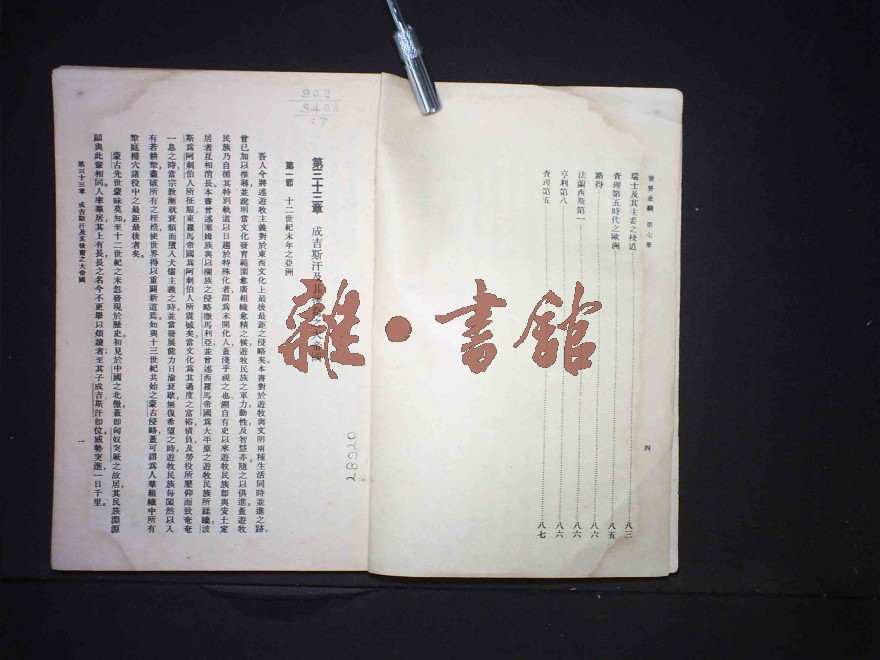 世界史綱　第七册
瑞士及其主要之棧道……八三
查理第五時代之歐洲……八五
路得……八六
法蘭西斯第一……八六
亨利第八……八六
查理第五……八七
四
902
5406
:7
第三十三章　成吉斯汗及其
第一節　十二世紀末年之亞洲
吾人今將述遊牧主義對於東西文化上最後最鉅之侵略矣本書對於遊牧與文明兩種生活同時並進之跡，
曾已加以推尋並說明當文化發育範圍愈廣組織愈精之候遊牧民族之軍力動性及智慧亦隨之以俱進蓋遊牧
民族乃自循其特別軌道以日趨於特殊化者謂爲未開化人蓋淺乎視之也溯自有史以來遊牧民族卽與安土定
居者互相消長本書曾述塞緬族與以欄族之侵略撒馬利亞並曾述西羅馬帝國爲大平原之遊牧民族所蹂躪波
斯爲阿剌伯人所征服東羅馬帝國爲阿剌伯人所震撼矣當文化爲其過度之富裕債負及勞役所壓仰而致奄奄
一息之時當宗教漸就衰頹而墮入犬儒主義之時並當發展能力日淪衰歇無復希望之時遊牧民族每闖然以入
有若耕犂盡破所有之桎梏使世界得以重闢新道焉如與十三世紀共始之蒙古侵略蓋可謂爲人羣組織中所有
犂庭掃穴諸役中之最鉅最後者矣。
蒙古先世蒙昧莫知至十二世紀之末忽發現於歷史初見於中國之北徼蓋卽匈奴突厥之故居其民族淵源
顯與此輩相同人率羣居其上有長長之名今不更舉以煩讀者至其子成吉斯汗卽位威勢突進一日千里。
第三十三章　成吉斯汗及其後裔之大帝國
一
雜·書館